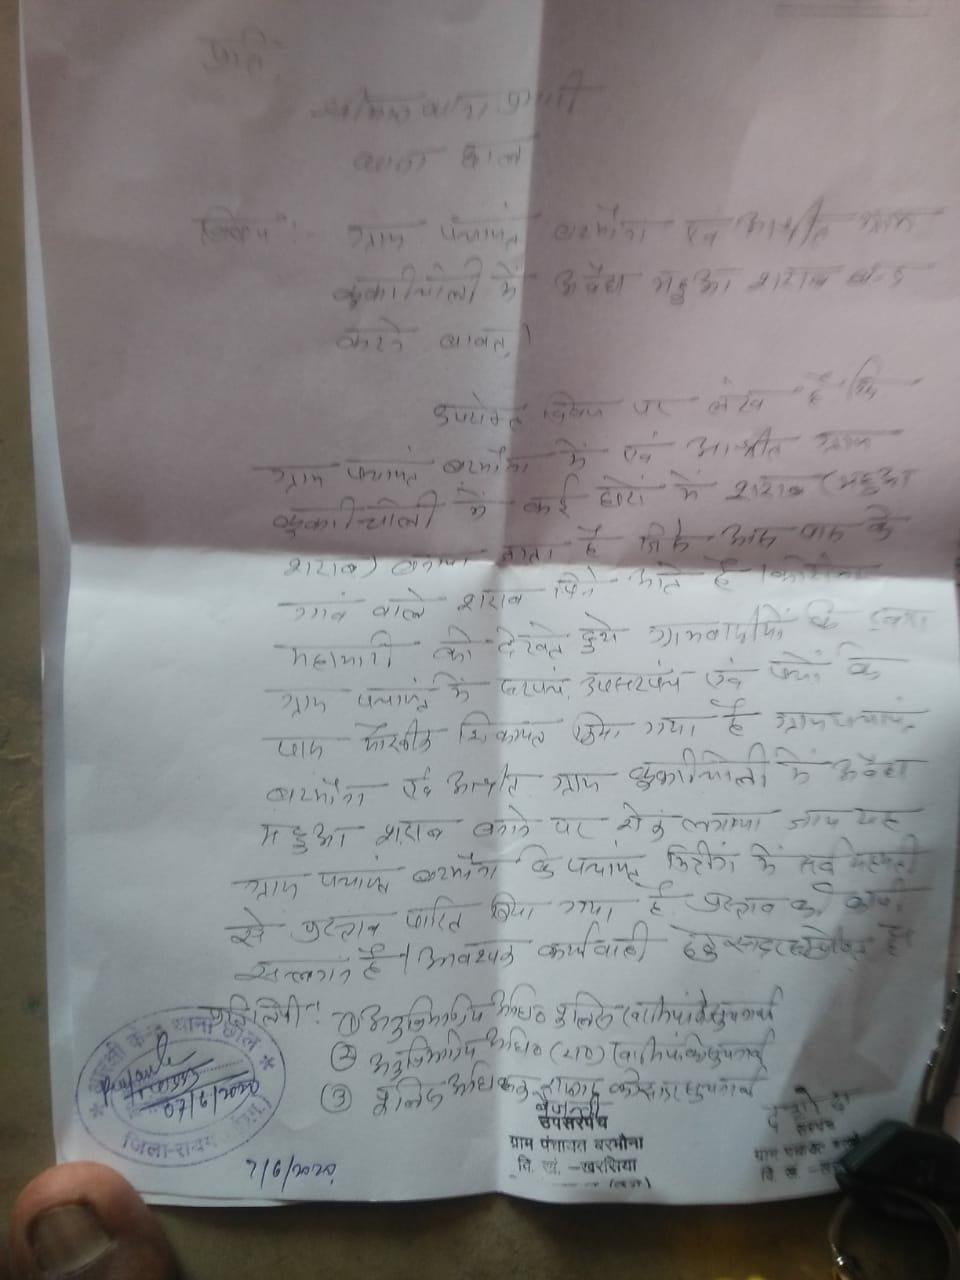 प्रति,
थाना छाल
विषय :- ग्राम पंचायत बरभौना एवं आश्रीत ग्राम
कुकरीचोली में अवैध महुआ शराब बन्द
करने बाबत्।
उपरोक्त विषय पर लेख है कि
ग्राम पंचायत बरभौना में एवं आश्रीत ग्राम
कुकरीचोली में कई घरों में शराब (महुआ
शराब) बनाया जाता है जिसे आस पास के
गांव वाले शराब पिने आते है। कोरोना
महामारी को देखते हुये ग्रामवासियों कि द्वारा
ग्राम पंचायत के सरपंच, उपसरपंच एवं पंचों के
पास मौखीक शिकायत किया गया है ग्राम पंचायत
बरभौना एवं आश्रीत ग्राम कुकरीचोली में अवैध
महुआ शराब बनाने पर रोक लगाया जाय यह
ग्राम पंचायत बरभौना के पंचायत मिटींग में सर्व सहमती
से प्रस्ताव पारित किया गया है प्रस्ताव की कापी
सलग्न है। आवश्यक कार्यवाही हेतु सादर सम्प्रेषित है।
प्रतिलिपी :- ① अनुविभागीय अधि० पुलिस खरसिया को सुचनार्थ
② अनुविभागीय अधि० (रा०) खरसिया को सुचनार्थ
③ पुलिस अधिक्षक रायगढ़ को सादर सुचनार्थ
थाना छाल
जिला-रायगढ़
07/6/2020
7/6/2020
बैजन्ती
उपसरपंच
ग्राम पंचायत बरभौना
वि. खं. -खरसिया
सरपंच
ग्राम पंचायत
वि. खं.